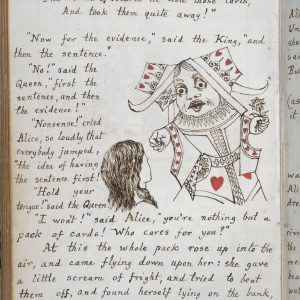 And took them quite away!"
"Now for the evidence," said the King, "and
then the sentence."
"No!" said the
Queen, "first the
sentence, and then
the evidence!"
"Nonsense!" cried
Alice, so loudly that
everybody jumped,
"the idea of having
the sentence first!"
"Hold your
tongue!" said the Queen.
"I won't!" said Alice, "you're nothing but a
pack of cards! Who cares for you?"
At this the whole pack rose up into the
air, and came flying down upon her: she gave
a little scream of fright, and tried to beat
them off, and found herself lying on the bank,